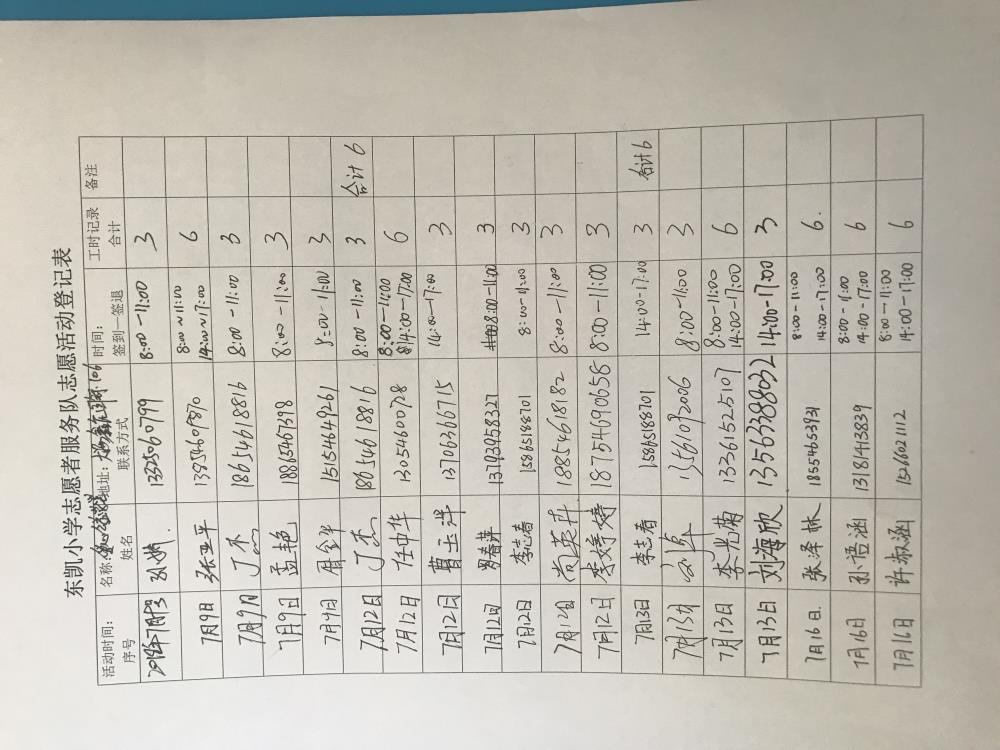 东凯小学志愿者服务队志愿活动登记表
活动时间: 名称: 地址: 时间: 工时记录 备注
序号 姓名 联系方式 签到一签退 合计
13325460799 8:00-11:00 3
7月9日 张亚平 8:00~11:00 14:00~17:00 6
7月9日 丁杰 18654618816 8:00-11:00 3
7月9日 孟艳 18865467398 8:00-11:00 3
7月9日 15154649261 8:00-11:00 3
7月12日 丁杰 18654618816 8:00-11:00 3 合计6
7月12日 任中华 13054600728 8:00-11:00 14:00-17:00 6
7月12日 曹玉萍 13703636715 14:00-17:00 3
7月12日 13793958327 8:00-11:00 3
7月12日 李志春 15865188701 8:00-11:00 3
7月12日 尚英卉 18854618182 8:00-11:00 3
7月12日 李婷婷 18754690658 8:00-11:00 3
7月13日 李志春 15865188701 14:00-17:00 3 合计6
7月13日 13561092006 8:00-11:00 3
7月13日 李光菊 13361525107 8:00-11:00 14:00-17:00 6
7月13日 刘海欣 13563388032 14:00-17:00 3
7月16日. 张泽林 18554653931 8:00-11:00 14:00-17:00 6.
7月16日 孙语涵 13181413839 8:00-11:00 14:00-17:00 6
7月16日 许淑涵 15266021112 8:00-11:00 14:00-17:00 6